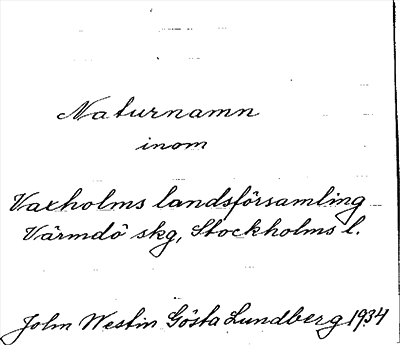 Naturnamn
inom
Vaxholms landsförsamling
Värmdö skg, Stockholms l.
John Westin Gösta Lundberg 1934